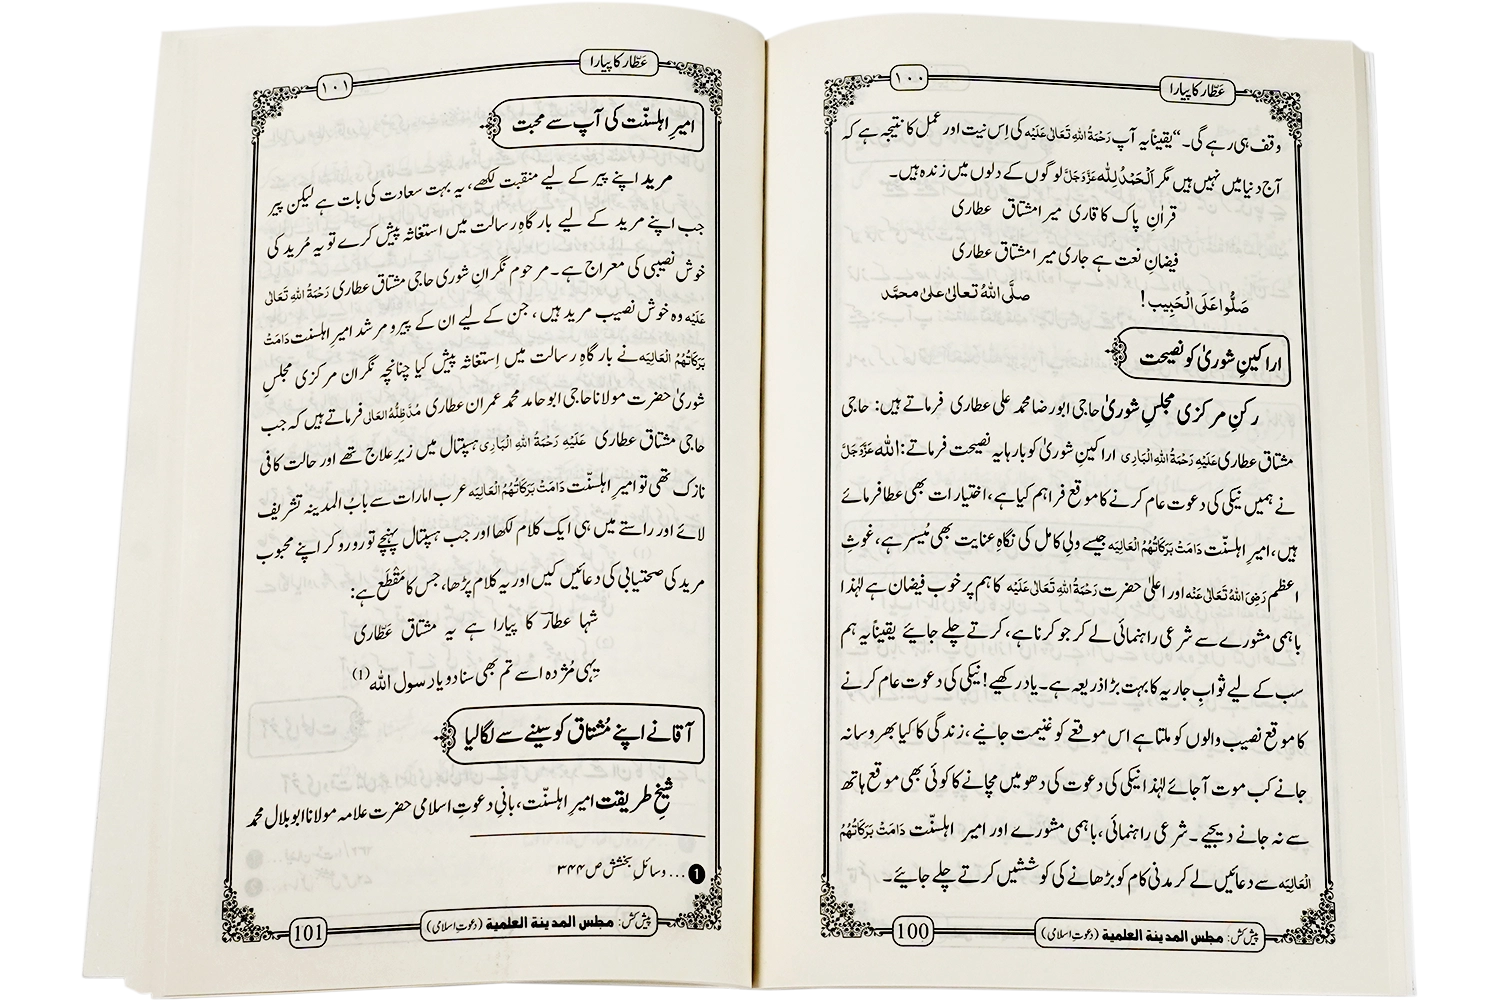 عطّار کا پیارا
۱۰۰
وقف ہی رہے گی۔“ یقیناً یہ آپ رَحْمَۃُ اللہِ تَعَالٰی عَلَیْہ کی اِس نیت اور عمل کا نتیجہ ہے کہ
آج دنیا میں نہیں ہیں مگر اَلْحَمْدُ لِلّٰہ عَزَّوَجَلَّ لوگوں کے دلوں میں زندہ ہیں۔
قراٰنِ پاک کا قاری میرا مشتاق عطاری
فیضانِ نعت ہے جاری میرا مشتاق عطاری
صَلُّوا عَلَی الْحَبِیب! صلَّی اللہُ تعالٰی علٰی محمَّد
اراکینِ شوریٰ کو نصیحت
رکنِ مرکزی مجلسِ شوریٰ حاجی ابو رضا محمد علی عطاری فرماتے ہیں: حاجی
مشتاق عطاری عَلَیْہِ رَحْمَۃُ اللہِ الْبَارِی اراکینِ شوریٰ کو بارہا یہ نصیحت فرماتے: اللہ عَزَّوَجَلَّ
نے ہمیں نیکی کی دعوت عام کرنے کا موقع فراہم کیا ہے، اختیارات بھی عطا فرمائے
ہیں، امیرِ اہلسنّت دَامَتْ بَرَکَاتُہُمُ الْعَالِیَہ جیسے ولیِ کامل کی نگاہِ عنایت بھی مُیسر ہے، غوثِ
اعظم رَضِیَ اللہُ تَعَالٰی عَنْہ اور اعلیٰ حضرت رَحْمَۃُ اللہِ تَعَالٰی عَلَیْہ کا ہم پر خوب فیضان ہے لہٰذا
باہمی مشورے سے شرعی راہنمائی لے کر جو کرنا ہے، کرتے چلے جائیے یقیناً یہ ہم
سب کے لیے ثوابِ جاریہ کا بہت بڑا ذریعہ ہے۔ یاد رکھیے! نیکی کی دعوت عام کرنے
کا موقع نصیب والوں کو ملتا ہے اس موقعے کو غنیمت جانیے، زندگی کا کیا بھروسا نہ
جانے کب موت آجائے لہٰذا نیکی کی دعوت کی دھومیں مچانے کا کوئی بھی موقع ہاتھ
سے نہ جانے دیجیے۔ شرعی راہنمائی، باہمی مشورے اور امیرِ اہلسنّت دَامَتْ بَرَکَاتُہُمُ
الْعَالِیَہ سے دعائیں لے کر مدنی کام کو بڑھانے کی کوششیں کرتے چلے جائیے۔
پیش کش: مجلس المدینۃ العلمیۃ (دعوتِ اسلامی)
100
عطّار کا پیارا
۱۰۱
امیرِ اہلسنّت کی آپ سے محبت
مرید اپنے پیر کے لیے منقبت لکھے، یہ بہت سعادت کی بات ہے لیکن پیر
جب اپنے مرید کے لیے بارگاہِ رسالت میں استغاثہ پیش کرے تو یہ مُرید کی
خوش نصیبی کی معراج ہے۔ مرحوم نگرانِ شوریٰ حاجی مشتاق عطاری رَحْمَۃُ اللہِ تَعَالٰی
عَلَیْہ وہ خوش نصیب مرید ہیں، جن کے لیے ان کے پیر و مرشد امیرِ اہلسنت دَامَتْ
بَرَکَاتُہُمُ الْعَالِیَہ نے بارگاہِ رسالت میں اِستغاثہ پیش کیا چنانچہ نگرانِ مرکزی مجلسِ
شوریٰ حضرت مولانا حاجی ابو حامد محمد عمران عطاری مُدَّظِلُّہُ العَالِی فرماتے ہیں کہ جب
حاجی مشتاق عطاری عَلَیْہِ رَحْمَۃُ اللہِ الْبَارِی ہسپتال میں زیرِ علاج تھے اور حالت کافی
نازک تھی تو امیرِ اہلسنّت دَامَتْ بَرَکَاتُہُمُ الْعَالِیَہ عرب امارات سے بابُ المدینہ تشریف
لائے اور راستے میں ہی ایک کلام لکھا اور جب ہسپتال پہنچے تو رو رو کر اپنے محبوب
مرید کی صحتیابی کی دعائیں کیں اور یہ کلام پڑھا، جس کا مَقْطَع ہے:
شہا عطار کا پیارا ہے یہ مشتاق عطّاری
یہی مُژدہ اسے تم بھی سنادو یا رسول اللہ (1)
آقا نے اپنے مُشتاق کو سینے سے لگا لیا
شیخِ طریقت امیرِ اہلسنّت، بانیِ دعوتِ اسلامی حضرت علامہ مولانا ابو بلال محمد
1 ... وسائلِ بخشش ص ۳۴۴
پیش کش: مجلس المدینۃ العلمیۃ (دعوتِ اسلامی)
101